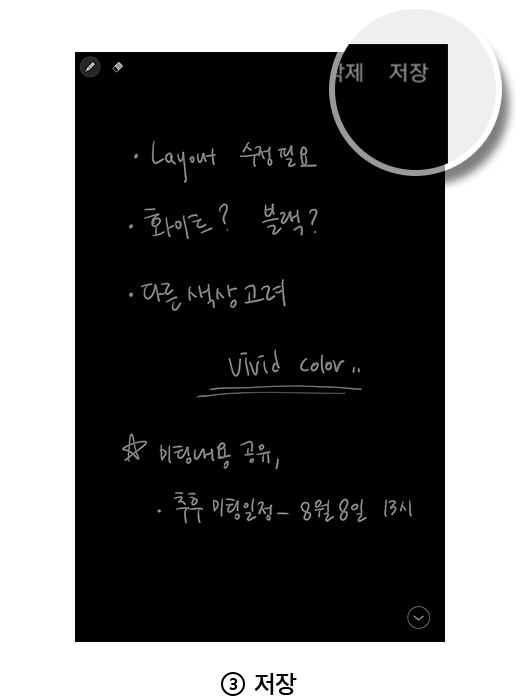 삭제 저장
· Layout 수정 필요
· 화이트? 블랙?
· 다른 색상 고려
vivid color..
☆ 미팅내용 공유,
· 추후 미팅일정 - 8월 8일 13시
③ 저장